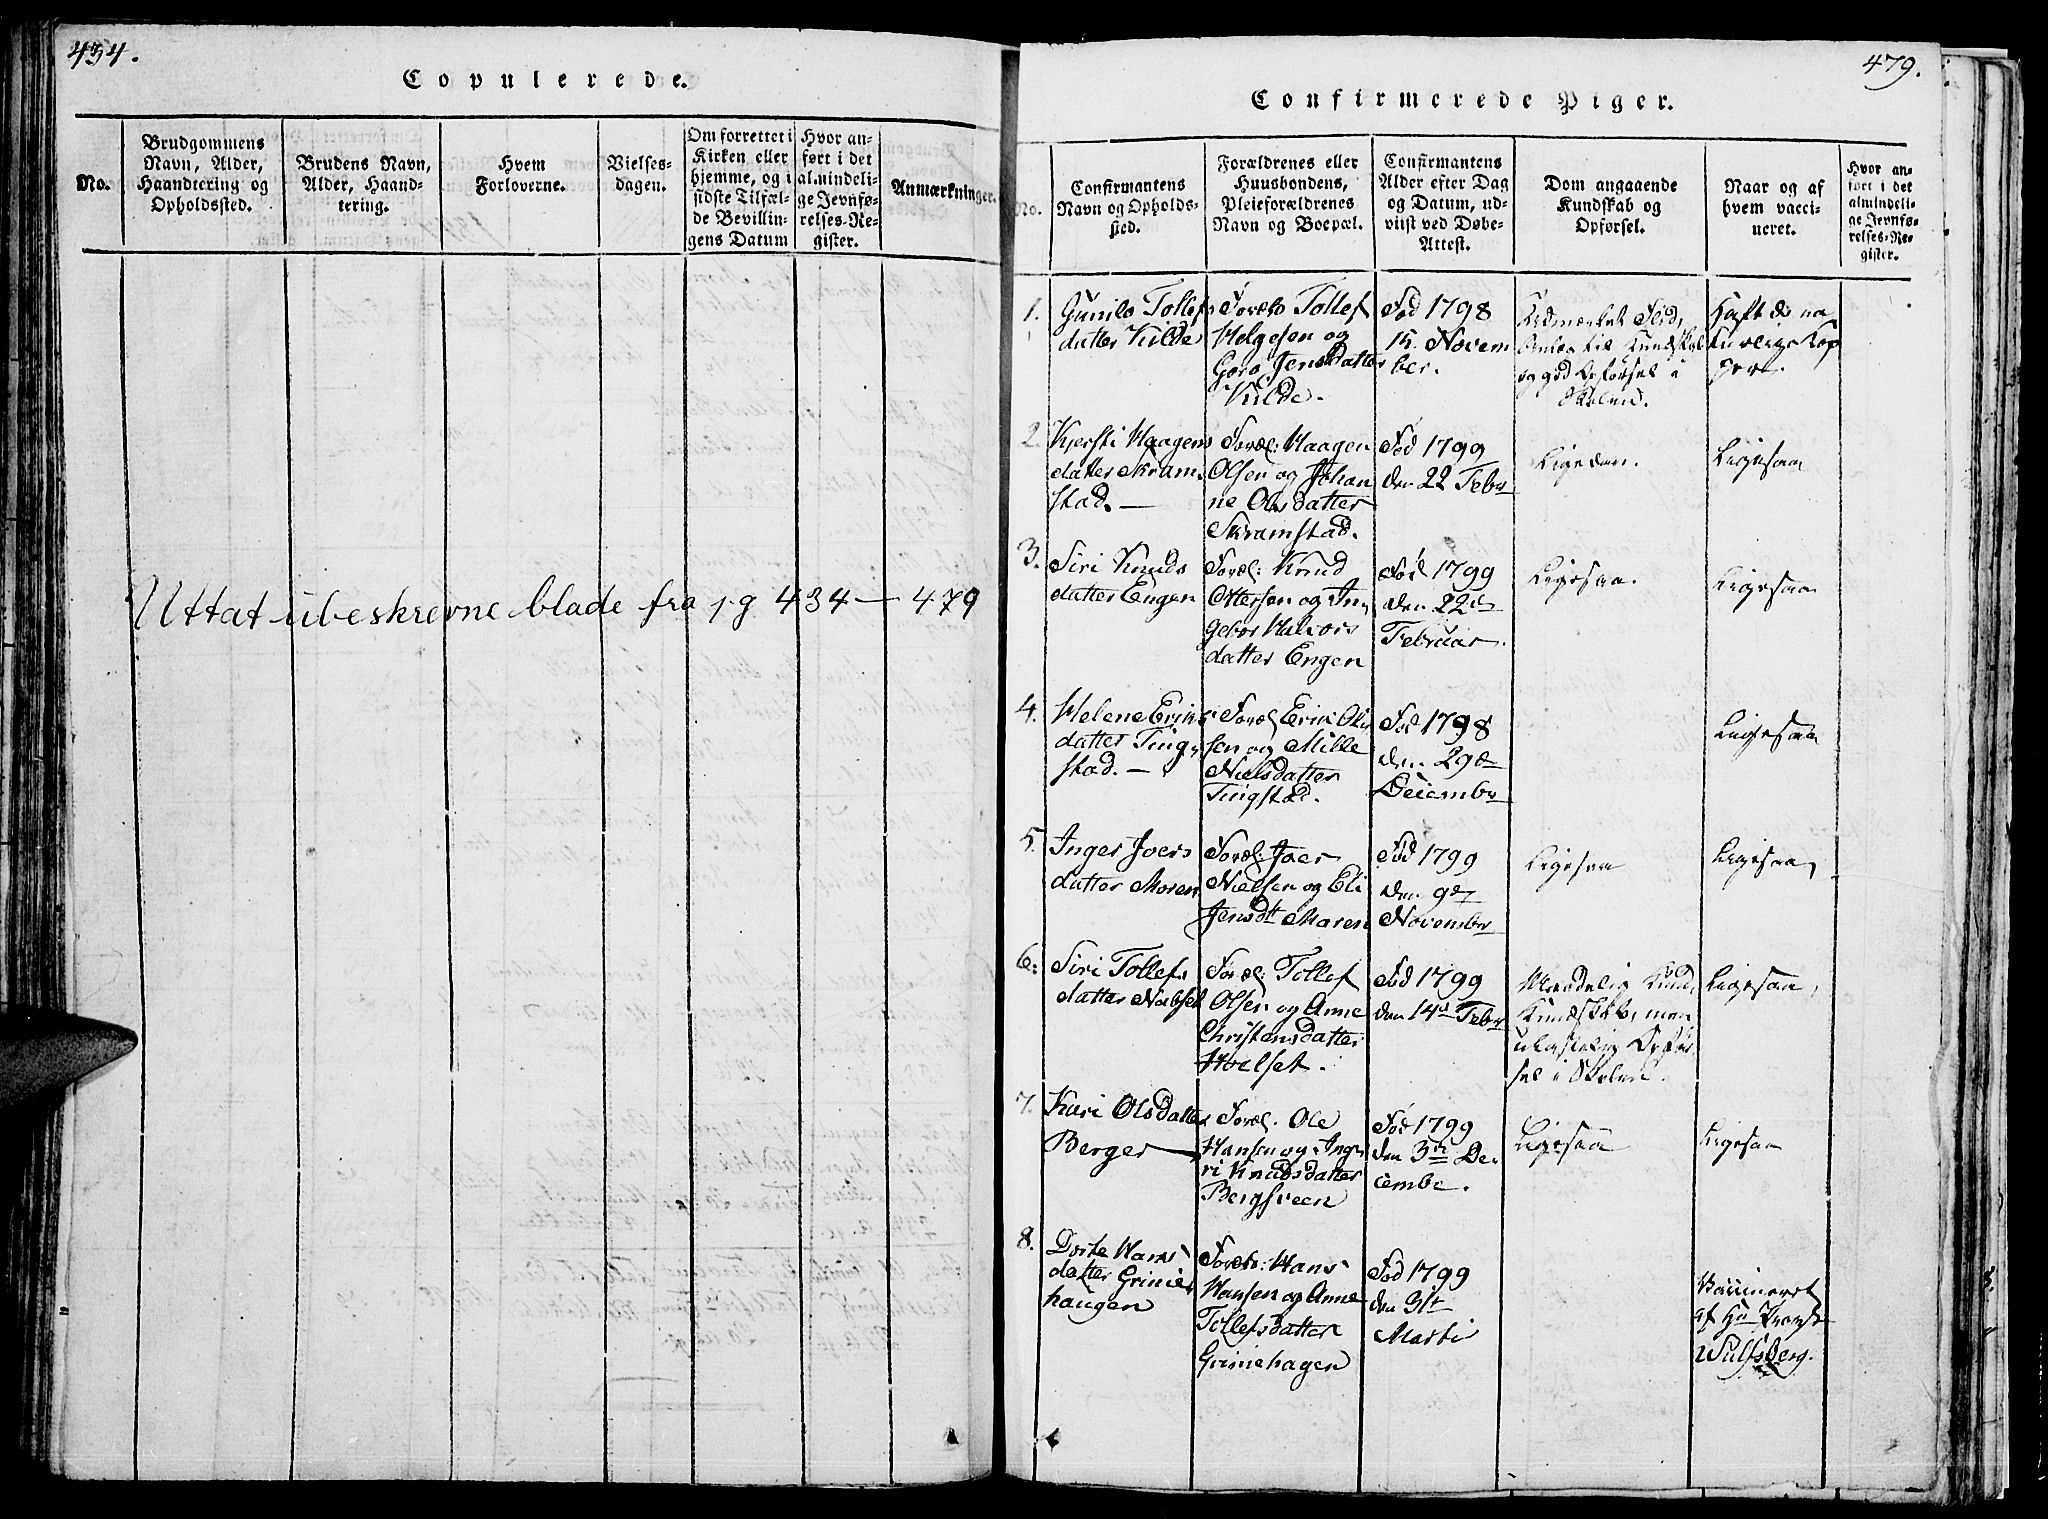 434.
Copulerede.
No.
Brudgommens
Navn, Alder,
Haandtering og
Opholdssted.
Brudens Navn,
Alder, Haand-
tering.
Hvem
Forloverne.
Vielses-
dagen.
Om forrettet i
Kirken eller
hjemme, og i
sidste Tilfæl-
de Bevillin-
gens Datum
Hvor an-
ført i det
almindeli-
ge Jevnfø-
relses-Re-
gister.
Anmærkninger.
Uttat ubeskrevne blade fra pg 434 — 479
479.
Confirmerede Piger.
No.
Confirmantens
Navn og Opholds-
sted.
Forældrenes eller
Huusbondens,
Pleieforældrenes
Navn og Boepæl.
Confirmantens
Alder efter Dag
og Datum, ud-
viist ved Døbe-
Attest.
Dom angaaende
Kundskab og
Opførsel.
Naar og af
hvem vacci-
neret.
Hvor an-
ført i det
almindeli-
ge Jevnfø-
relses-Re-
gister.
1.
Gunild Tollefs
datter Kilde
Foræld Tollef
Helgesen og
Goro Jensdatter
Kilde.
Fød 1798
15. Novem
ber.
og god Opførsel i
Skolen.
Havt de na
turlige Kop
per.
2.
Kjersti Haagens
datter Skram-
stad. —
Foræl: Haagen
Olsen og Johan
ne Olsdatter
Skramstad.
Fød 1799
den 22 Febr
Ligedan.
Ligesaa
3.
Siri Knuds
datter Engen
Foræl: Knud
Ottersen og In-
gebor Halvors
datter Engen
Fød 1799
den 22de
Februar.
Ligesaa.
Ligesaa
4.
Helene Eriks
datter Ting-
stad. —
Foræl Erik Ol-
sen og Mille
Nielsdatter
Tingstad.
Fød 1798
den 29de
Decembr
Ligesaa
5.
Inger Joers
datter Moren
Foræl: Joer
Nielsen og Eli
Jensdt Moren
Fød 1799
den 9de
Novembr
Ligesaa
Ligesaa
6.
Siri Tollefs
datter
Foræl: Tollef
Olsen og Anne
Christensdatter
Hoelset.
Fød 1799
den 14de Febr
Maadelig
Kundskab, men
ulastelig Opfør
sel i Skolen.
Ligesaa
7.
Kari Olsdatter
Berger —
Foræl. Ole
Hansen og Inge
ri Knudsdatter
Bergsveen
Fød 1799
den 3de De
cembr.
Ligesaa
Ligesaa
8.
Dorte Hans
datter Grinier
haugen
Foræld: Hans
Hansen og Anne
Tollefsdatter
Griniehagen
Fød 1799
den 31t
Marti
Vaccineret
af Hr Provst
Wulfsberg.